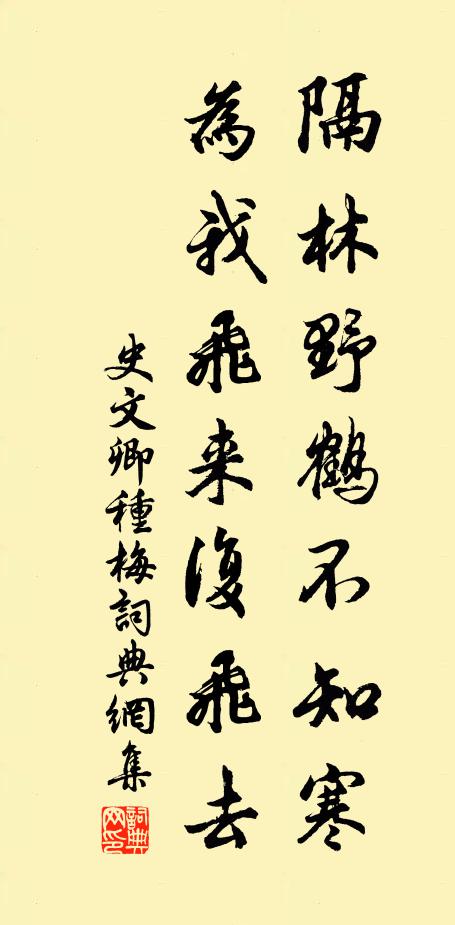 隔林野鶴不知寒
為我飛来復飛去
史文卿種梅詞典網集
詞典網印